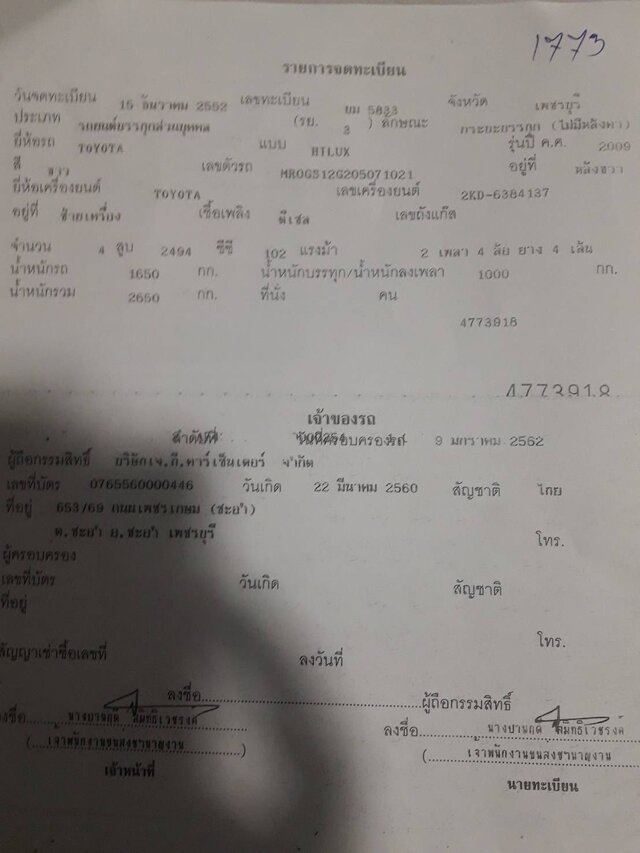 1773
รายการจดทะเบียน
วันจดทะเบียน 15 ธันวาคม 2552 เลขทะเบียน ยม 5833 จังหวัด เพชรบุรี
ประเภท รถยนต์บรรทุกส่วนบุคคล (รย. 3 ) ลักษณะ กระบะบรรทุก (ไม่มีหลังคา)
ยี่ห้อรถ TOYOTA แบบ HILUX รุ่นปี ค.ศ. 2009
สี ขาว เลขตัวรถ MR0GS12G205071021 อยู่ที่ หลังขวา
ยี่ห้อเครื่องยนต์ TOYOTA เลขเครื่องยนต์ 2KD-6384137
อยู่ที่ ซ้ายเครื่อง เชื้อเพลิง ดีเซล เลขถังแก๊ส
จำนวน 4 สูบ 2494 ซีซี 102 แรงม้า 2 เพลา 4 ล้อ ยาง 4 เส้น
น้ำหนักรถ 1650 กก. น้ำหนักบรรทุก/น้ำหนักลงเพลา 1000 กก.
น้ำหนักรวม 2650 กก. ที่นั่ง คน
4773918
4773918
เจ้าของรถ
ลำดับที่ วันที่ครอบครองรถ 9 มกราคม 2562
ผู้ถือกรรมสิทธิ์ บริษัทเจ.ที.คาร์เซ็นเตอร์ จำกัด
เลขที่บัตร 0765560000446 วันเกิด 22 มีนาคม 2560 สัญชาติ ไทย
ที่อยู่ 653/69 ถนนเพชรเกษม (ชะอำ)
ต.ชะอำ อ.ชะอำ เพชรบุรี โทร.
ผู้ครอบครอง
เลขที่บัตร วันเกิด สัญชาติ
ที่อยู่
โทร.
สัญญาเช่าซื้อเลขที่ ลงวันที่
ลงชื่อ ผู้ถือกรรมสิทธิ์
ลงชื่อ ลงชื่อ
(เจ้าพนักงานขนส่งชำนาญงาน) (เจ้าพนักงานขนส่งชำนาญงาน)
เจ้าหน้าที่ นายทะเบียน